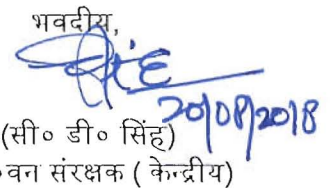 भवदीय,
सिंह
20/08/2018
(सी० डी० सिंह)
वन संरक्षक ( केन्द्रीय)